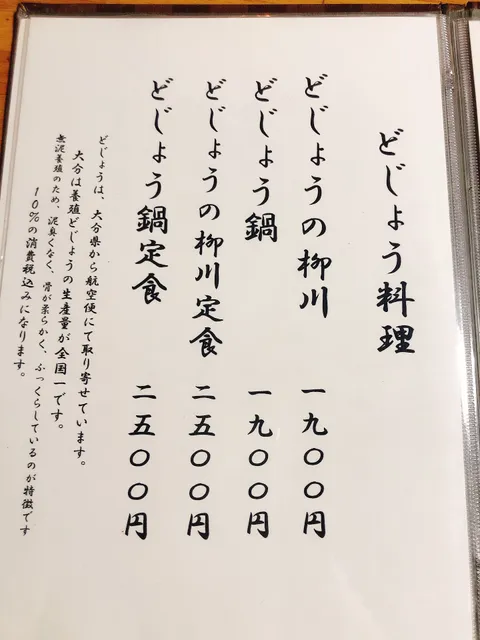 どじょう料理
どじょうの柳川 一九〇〇円
どじょう鍋 一九〇〇円
どじょうの柳川定食 二五〇〇円
どじょう鍋定食 二五〇〇円
どじょうは、大分県から航空便にて取り寄せています。
大分は養殖どじょうの生産量が全国一です。
無泥養殖のため、泥臭くなく、骨が柔らかく、ふっくらしているのが特徴です
10%の消費税込みになります。